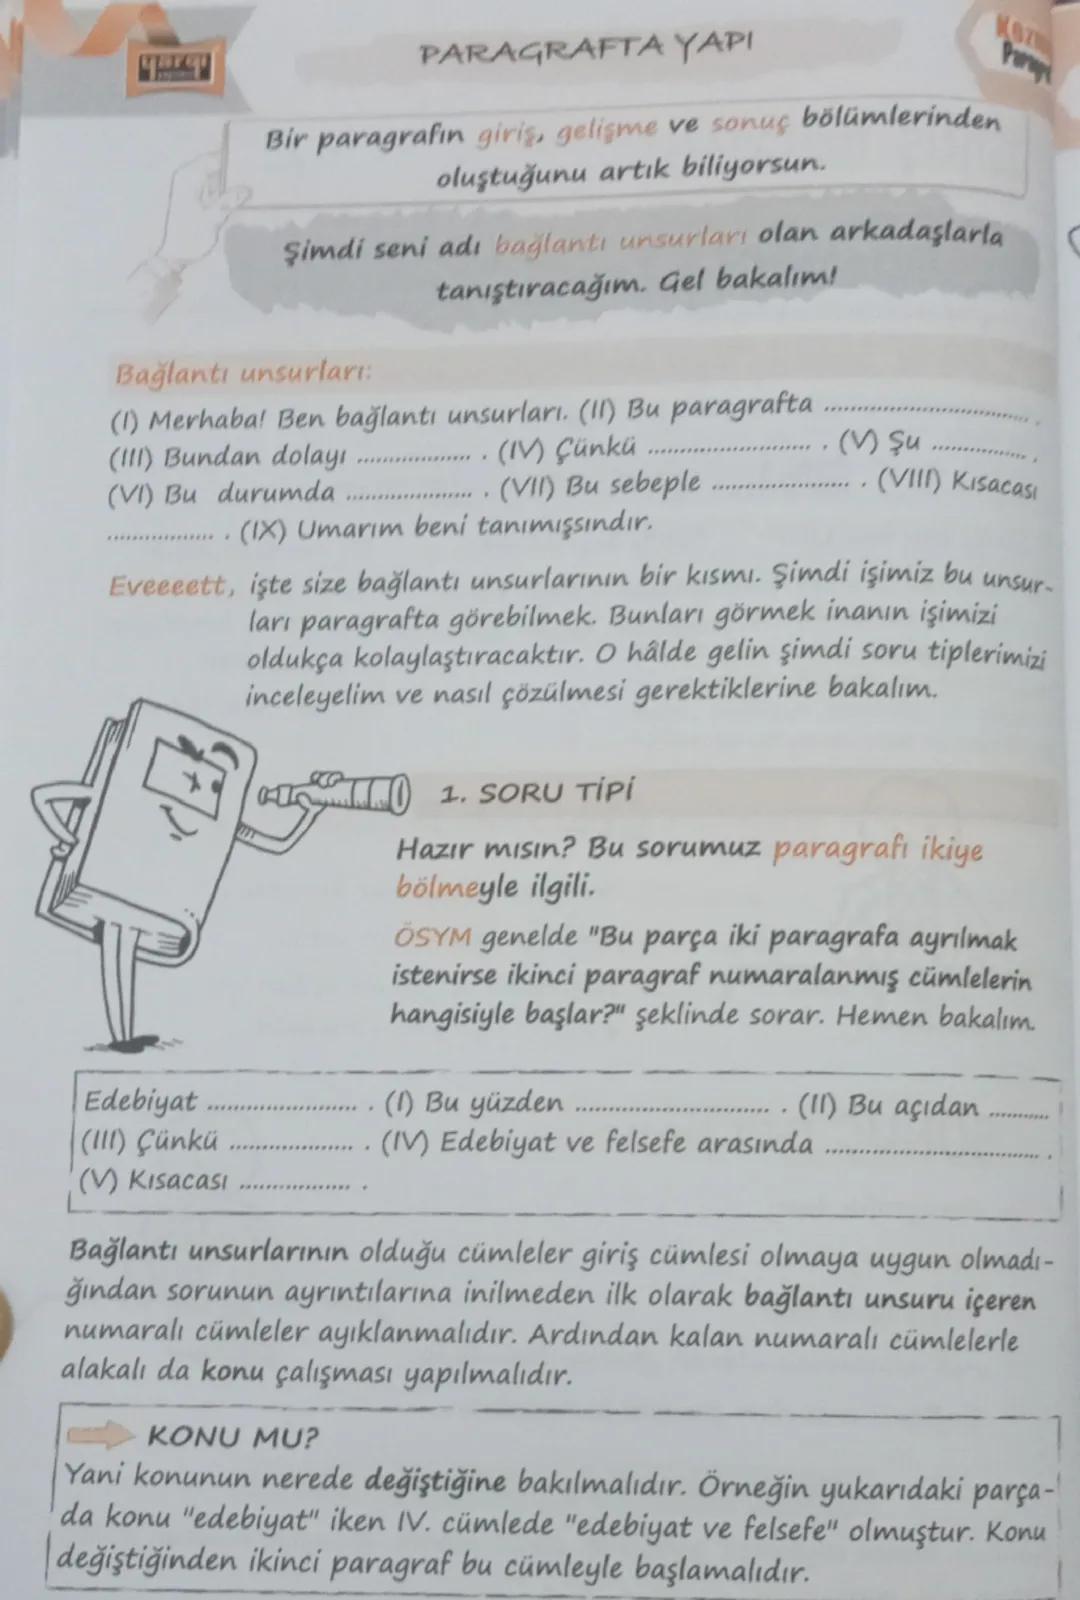 yargı
PARAGRAFTA YAPI
Bir paragrafın giriş, gelişme ve sonuç bölümlerinden
oluştuğunu artık biliyorsun.
Şimdi seni adı bağlantı unsurları olan arkadaşlarla
tanıştıracağım. Gel bakalım!
Bağlantı unsurları:
(I) Merhaba! Ben bağlantı unsurları. (II) Bu paragrafta .............................. .
(III) Bundan dolayı ................. . (IV) Çünkü ........................ . (V) Şu .............. .
(VI) Bu durumda ................... . (VII) Bu sebeple .................... . (VIII) Kısacası
................ . (IX) Umarım beni tanımışsındır.
Eveeeett, işte size bağlantı unsurlarının bir kısmı. Şimdi işimiz bu unsur-
ları paragrafta görebilmek. Bunları görmek inanın işimizi
oldukça kolaylaştıracaktır. O hâlde gelin şimdi soru tiplerimizi
inceleyelim ve nasıl çözülmesi gerektiklerine bakalım.
1. SORU TİPİ
Hazır mısın? Bu sorumuz paragrafı ikiye
bölmeyle ilgili.
ÖSYM genelde "Bu parça iki paragrafa ayrılmak
istenirse ikinci paragraf numaralanmış cümlelerin
hangisiyle başlar?" şeklinde sorar. Hemen bakalım.
Edebiyat ...................... . (I) Bu yüzden ............................ . (II) Bu açıdan ...........
(III) Çünkü .................. . (IV) Edebiyat ve felsefe arasında ................................ .
(V) Kısacası ................ .
Bağlantı unsurlarının olduğu cümleler giriş cümlesi olmaya uygun olmadı-
ğından sorunun ayrıntılarına inilmeden ilk olarak bağlantı unsuru içeren
numaralı cümleler ayıklanmalıdır. Ardından kalan numaralı cümlelerle
alakalı da konu çalışması yapılmalıdır.
KONU MU?
Yani konunun nerede değiştiğine bakılmalıdır. Örneğin yukarıdaki parça-
da konu "edebiyat" iken IV. cümlede "edebiyat ve felsefe" olmuştur. Konu
değiştiğinden ikinci paragraf bu cümleyle başlamalıdır.